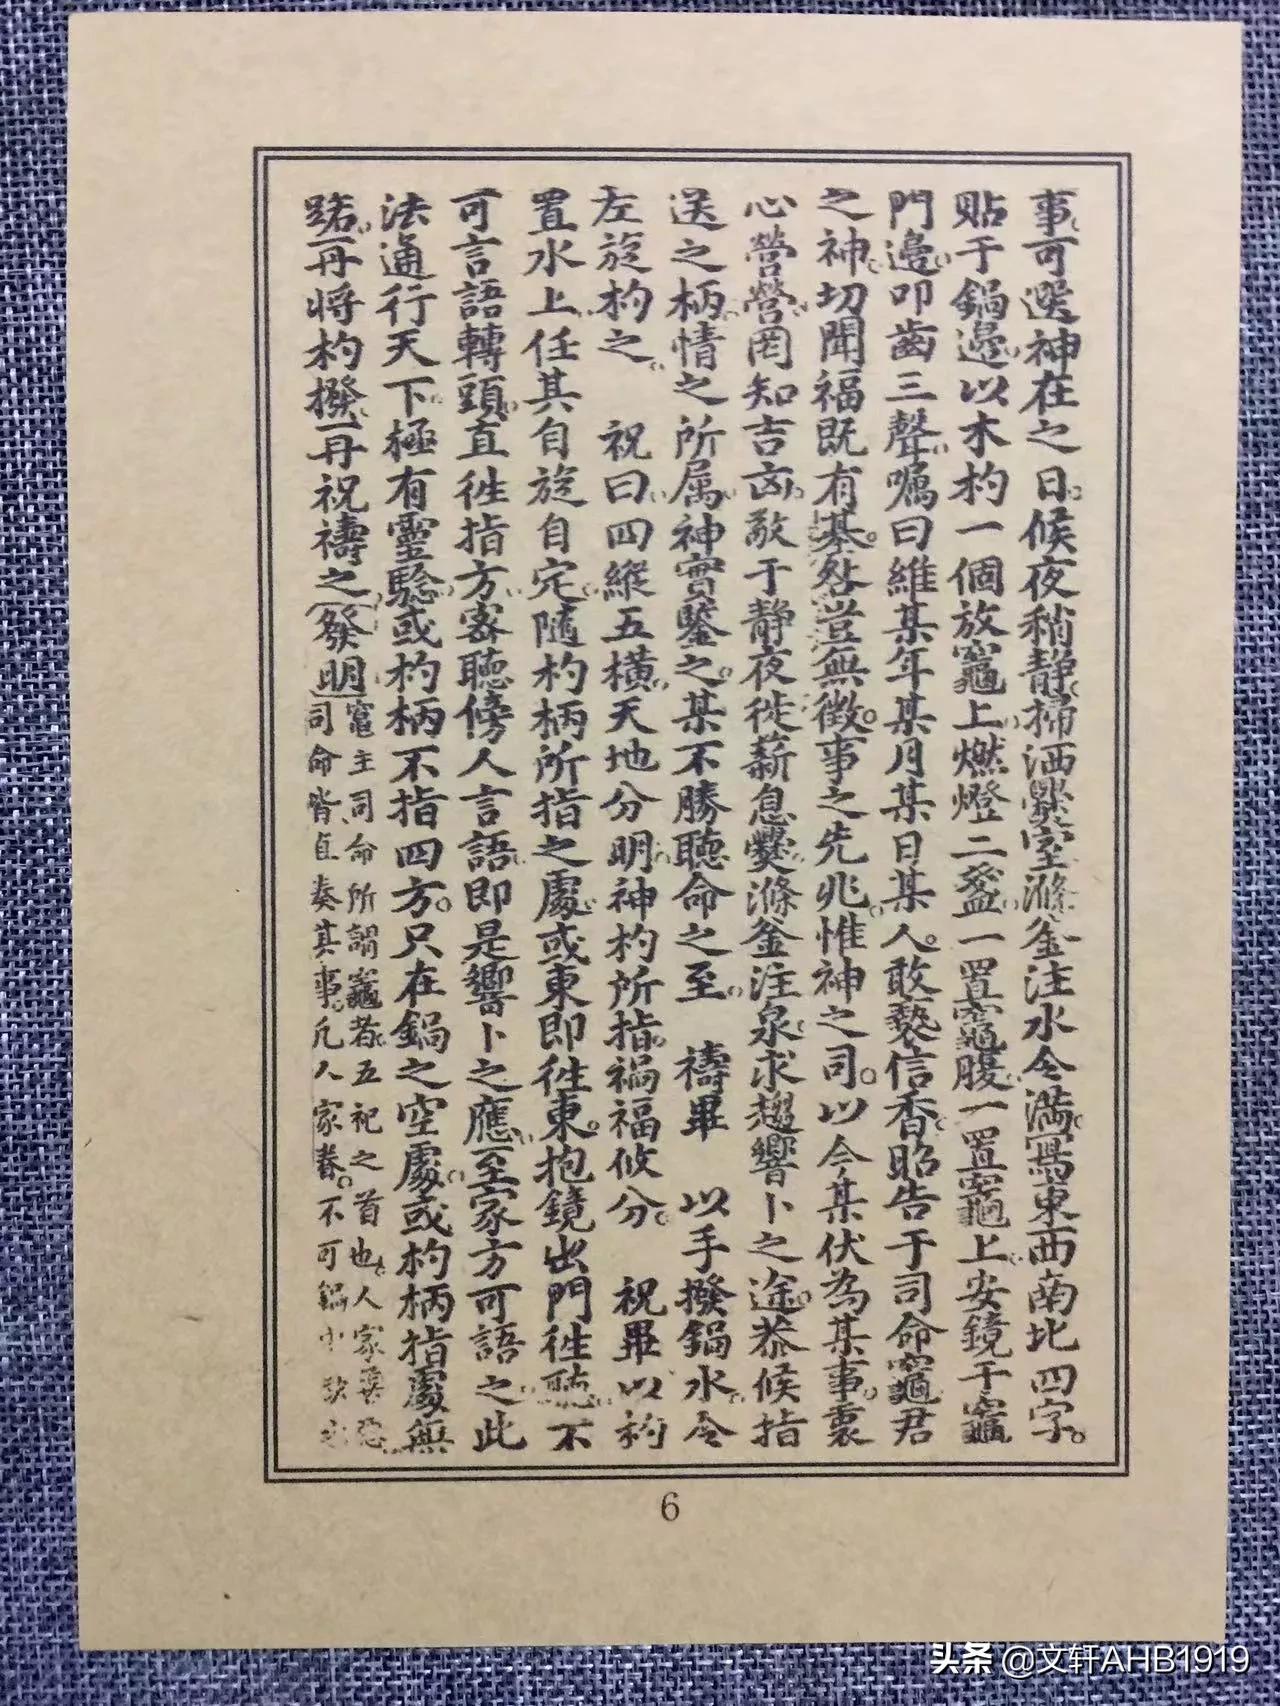 事可選神在之日候夜稍靜掃洒爨室滌釜注水令滿寫東西南北四字
貼于鍋邊以木杓一個放竈上燃燈二盞一置竈腹一置竈上安鏡于竈
門邊叩齒三聲囑曰維某年某月某日某人敢爇信香昭告于司命竈君
之神切聞福既有基咎豈無徵事之先兆惟神之司以今某伏為某事衷
心營營罔知吉凶敬于静夜徙薪息爨滌釜注泉求趨響卜之途恭候指
送之柄情之所属神實鑒之某不勝聽命之至 禱畢 以手撥鍋水令
左旋杓之 祝曰四縱五橫天地分明神杓所指禍福攸分 祝畢以杓
置水上任其自旋自定隨杓柄所指之處或東即徃東抱鏡出門徃聽不
可言語轉頭直徃指方密聽傍人言語即是響卜之應至家方可語之此
法通行天下極有靈驗或杓柄不指四方只在鍋之空處或杓柄指處無
路再將杓撥再祝禱之發明竈主司命所謂竈者五祀之首也人家
司命皆直奏其事凡人家春不可鍋中
6
头条 @文轩AHB1919